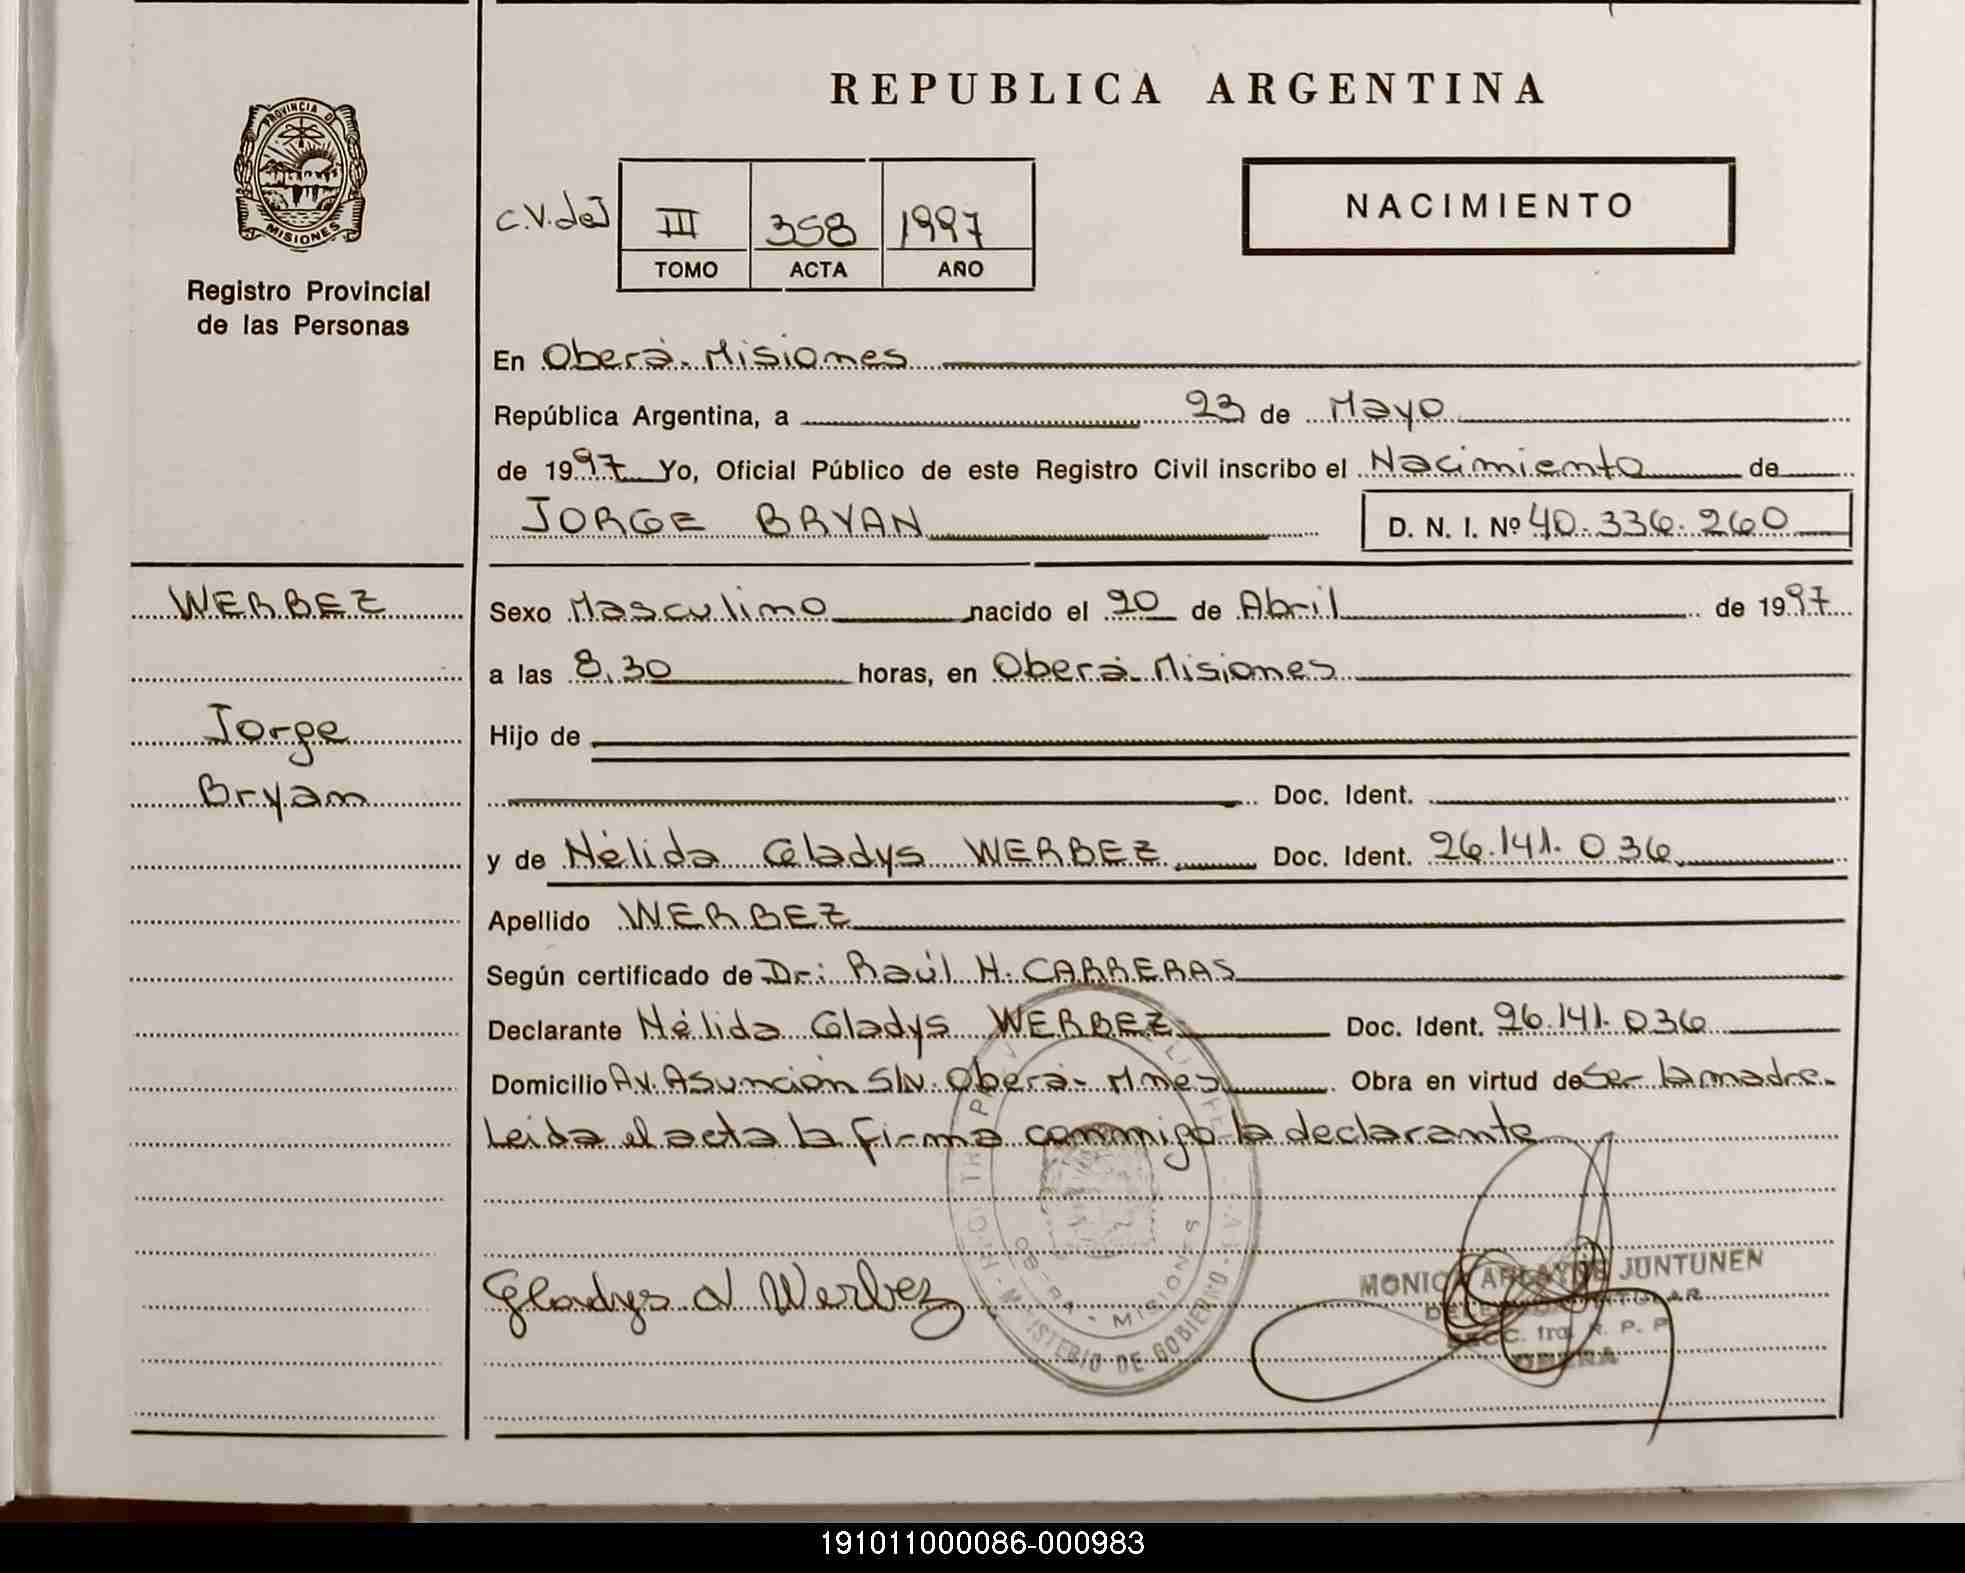 REPUBLICA ARGENTINA
PROVINCIA DE MISIONES
Registro Provincial
de las Personas
C.V.deJ III 358 1997
TOMO ACTA AÑO
NACIMIENTO
En Oberá-Misiones
República Argentina, a 23 de Mayo
de 1997 Yo, Oficial Público de este Registro Civil inscribo el Nacimiento de
JORGE BRYAN D. N. I. Nº 40.336.260
WERBEZ
Jorge
Bryan
Sexo Masculino nacido el 20 de Abril de 1997
a las 8.30 horas, en Oberá-Misiones
Hijo de
Doc. Ident.
y de Nélida Gladys WERBEZ Doc. Ident. 26.141.036
Apellido WERBEZ
Según certificado de Dr: Raúl H. CARRERAS
Declarante Nélida Gladys WERBEZ Doc. Ident. 26.141.036
Domicilio Av. Asunción S/N. Oberá- Mnes Obra en virtud de Ser la madre.-
Leida el acta la firma conmigo la declarante
Gladys N Werbez
MINISTERIO DE GOBIERNO
OBERA - MISIONES
MONICA JUNTUNEN
TITULAR
SECC. 1ra. R. P. P
OBERA
191011000086-000983